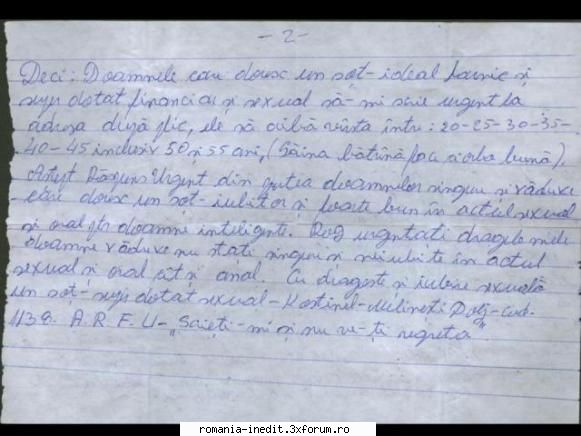 - 2 -
Deci: Doamnele care doresc un soț-ideal harnic și
super dotat financiar și sexual să-mi scrie urgent la
adresa după plic, ele să aibă vârsta între: 20-25-30-35-
40-45 inclusiv 50 și 55 ani, (Găina bătrînă face ciorba bună).
Aștept Răspuns Urgent din partea doamnelor singure și văduve
care doresc un soț-iubitor și foarte bun în actul sexual
și oral ptr doamne inteligente. Rog urgentați dragele mele
doamne văduve nu stați singure și neiubite în actul
sexual și oral cît și anal. Cu dragoste și iubire sexuală
un soț super dotat sexual - Kostinel-Milinești Dolj-cod.
1139. A.R.F.U- „Scrieți-mi și nu ve-ți regreta"
romania-inedit.3xforum.ro